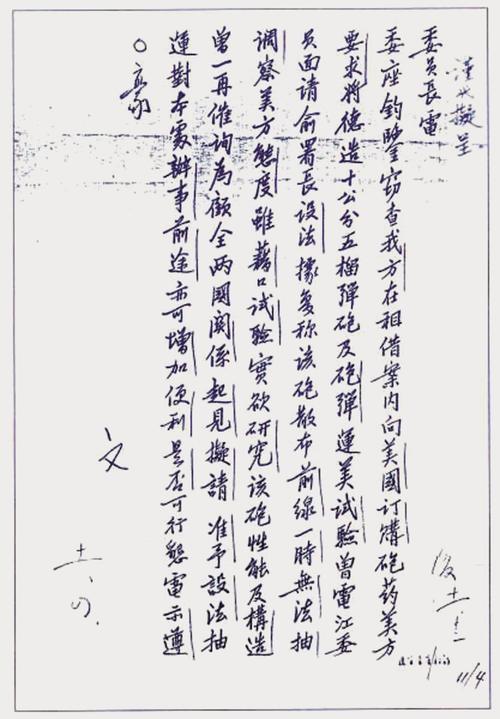 擬呈
委員長電
委座鈞鑒竊查我方在租借案内向美國訂購砲葯美方
要求將德造十公分五榴彈砲及砲彈運美試驗曾電江委
員面請俞署長設法據复称該砲散布前線一時無法抽
調察美方態度雖藉口試驗實欲研究該砲性能及構造
曾一再催詢為顧全两國関係起見擬請准予設法抽
運對本處辦事前途亦可增加便利是否可行懇電示遵
○豪
文
11/4